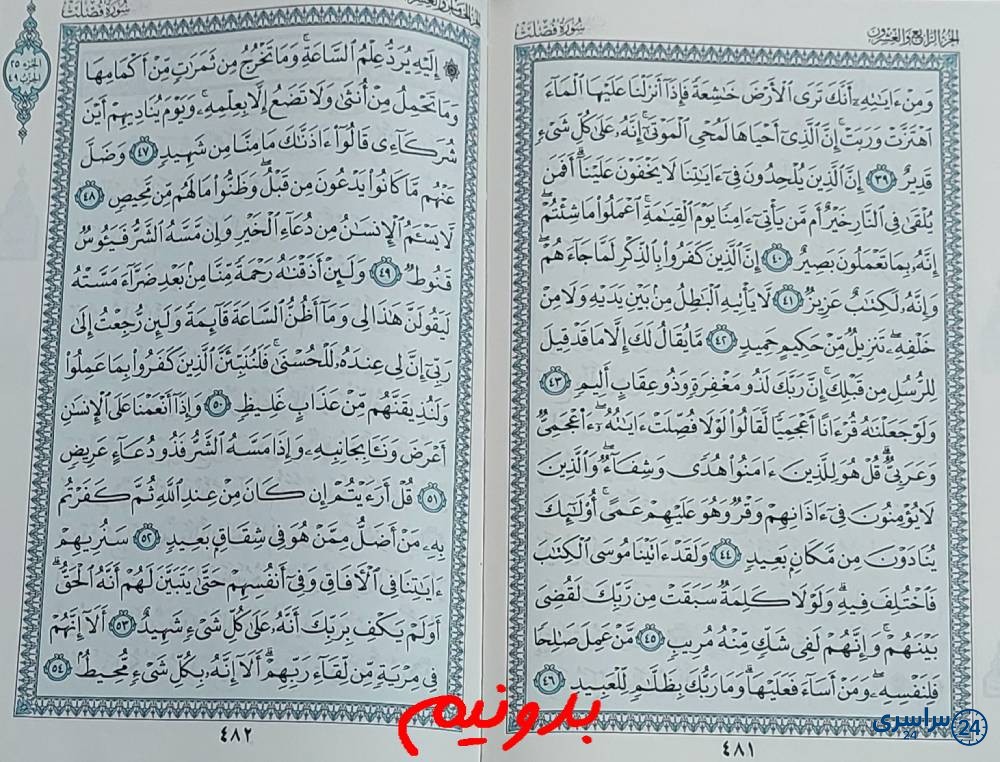 الجزء الرابع والعشرون
سورة فصلت
وَمِنْ ءَايَٰتِهِۦٓ أَنَّكَ تَرَى ٱلْأَرْضَ خَٰشِعَةً فَإِذَآ أَنزَلْنَا عَلَيْهَا ٱلْمَآءَ
ٱهْتَزَّتْ وَرَبَتْ ۚ إِنَّ ٱلَّذِىٓ أَحْيَاهَا لَمُحْىِ ٱلْمَوْتَىٰٓ ۚ إِنَّهُۥ عَلَىٰ كُلِّ شَىْءٍ
قَدِيرٌ ٣٩ إِنَّ ٱلَّذِينَ يُلْحِدُونَ فِىٓ ءَايَٰتِنَا لَا يَخْفَوْنَ عَلَيْنَآ ۗ أَفَمَن
يُلْقَىٰ فِى ٱلنَّارِ خَيْرٌ أَم مَّن يَأْتِىٓ ءَامِنًا يَوْمَ ٱلْقِيَٰمَةِ ۚ ٱعْمَلُوا۟ مَا شِئْتُمْ ۖ
إِنَّهُۥ بِمَا تَعْمَلُونَ بَصِيرٌ ٤٠ إِنَّ ٱلَّذِينَ كَفَرُوا۟ بِٱلذِّكْرِ لَمَّا جَآءَهُمْ ۖ
وَإِنَّهُۥ لَكِتَٰبٌ عَزِيزٌ ٤١ لَّا يَأْتِيهِ ٱلْبَٰطِلُ مِنۢ بَيْنِ يَدَيْهِ وَلَا مِنْ
خَلْفِهِۦ ۖ تَنزِيلٌ مِّنْ حَكِيمٍ حَمِيدٍ ٤٢ مَّا يُقَالُ لَكَ إِلَّا مَا قَدْ قِيلَ
لِلرُّسُلِ مِن قَبْلِكَ ۚ إِنَّ رَبَّكَ لَذُو مَغْفِرَةٍ وَذُو عِقَابٍ أَلِيمٍ ٤٣
وَلَوْ جَعَلْنَٰهُ قُرْءَانًا أَعْجَمِيًّا لَّقَالُوا۟ لَوْلَا فُصِّلَتْ ءَايَٰتُهُۥٓ ۖ ءَا۬عْجَمِىٌّ
وَعَرَبِىٌّ ۗ قُلْ هُوَ لِلَّذِينَ ءَامَنُوا۟ هُدًى وَشِفَآءٌ ۖ وَٱلَّذِينَ
لَا يُؤْمِنُونَ فِىٓ ءَاذَانِهِمْ وَقْرٌ وَهُوَ عَلَيْهِمْ عَمًى ۚ أُو۟لَٰٓئِكَ
يُنَادَوْنَ مِن مَّكَانٍۭ بَعِيدٍ ٤٤ وَلَقَدْ ءَاتَيْنَا مُوسَى ٱلْكِتَٰبَ
فَٱخْتُلِفَ فِيهِ ۗ وَلَوْلَا كَلِمَةٌ سَبَقَتْ مِن رَّبِّكَ لَقُضِىَ
بَيْنَهُمْ ۚ وَإِنَّهُمْ لَفِى شَكٍّ مِّنْهُ مُرِيبٍ ٤٥ مَّنْ عَمِلَ صَٰلِحًا
فَلِنَفْسِهِۦ ۖ وَمَنْ أَسَآءَ فَعَلَيْهَا ۗ وَمَا رَبُّكَ بِظَلَّٰمٍ لِّلْعَبِيدِ ٤٦
٤٨١
سورة فصلت
الجزء ٢٥
الحزب ٤٩
إِلَيْهِ يُرَدُّ عِلْمُ ٱلسَّاعَةِ ۚ وَمَا تَخْرُجُ مِن ثَمَرَٰتٍ مِّنْ أَكْمَامِهَا
وَمَا تَحْمِلُ مِنْ أُنثَىٰ وَلَا تَضَعُ إِلَّا بِعِلْمِهِۦ ۚ وَيَوْمَ يُنَادِيهِمْ أَيْنَ
شُرَكَآءِى قَالُوٓا۟ ءَاذَنَّٰكَ مَا مِنَّا مِن شَهِيدٍ ٤٧ وَضَلَّ
عَنْهُم مَّا كَانُوا۟ يَدْعُونَ مِن قَبْلُ ۖ وَظَنُّوا۟ مَا لَهُم مِّن مَّحِيصٍ ٤٨
لَّا يَسْـَٔمُ ٱلْإِنسَٰنُ مِن دُعَآءِ ٱلْخَيْرِ وَإِن مَّسَّهُ ٱلشَّرُّ فَيَـُٔوسٌ
قَنُوطٌ ٤٩ وَلَئِنْ أَذَقْنَٰهُ رَحْمَةً مِّنَّا مِنۢ بَعْدِ ضَرَّآءَ مَسَّتْهُ
لَيَقُولَنَّ هَٰذَا لِى وَمَآ أَظُنُّ ٱلسَّاعَةَ قَآئِمَةً وَلَئِن رُّجِعْتُ إِلَىٰ
رَبِّىٓ إِنَّ لِى عِندَهُۥ لَلْحُسْنَىٰ ۚ فَلَنُنَبِّئَنَّ ٱلَّذِينَ كَفَرُوا۟ بِمَا عَمِلُوا۟
وَلَنُذِيقَنَّهُم مِّنْ عَذَابٍ غَلِيظٍ ٥٠ وَإِذَآ أَنْعَمْنَا عَلَى ٱلْإِنسَٰنِ
أَعْرَضَ وَنَـَٔا بِجَانِبِهِۦ وَإِذَا مَسَّهُ ٱلشَّرُّ فَذُو دُعَآءٍ عَرِيضٍ
٥١ قُلْ أَرَءَيْتُمْ إِن كَانَ مِنْ عِندِ ٱللَّهِ ثُمَّ كَفَرْتُم
بِهِۦ مَنْ أَضَلُّ مِمَّنْ هُوَ فِى شِقَاقٍۭ بَعِيدٍ ٥٢ سَنُرِيهِمْ
ءَايَٰتِنَا فِى ٱلْءَافَاقِ وَفِىٓ أَنفُسِهِمْ حَتَّىٰ يَتَبَيَّنَ لَهُمْ أَنَّهُ ٱلْحَقُّ ۗ
أَوَلَمْ يَكْفِ بِرَبِّكَ أَنَّهُۥ عَلَىٰ كُلِّ شَىْءٍ شَهِيدٌ ٥٣ أَلَآ إِنَّهُمْ
فِى مِرْيَةٍ مِّن لِّقَآءِ رَبِّهِمْ ۗ أَلَآ إِنَّهُۥ بِكُلِّ شَىْءٍ مُّحِيطٌۢ ٥٤
٤٨٢
بدونیم
سراسری 24
24